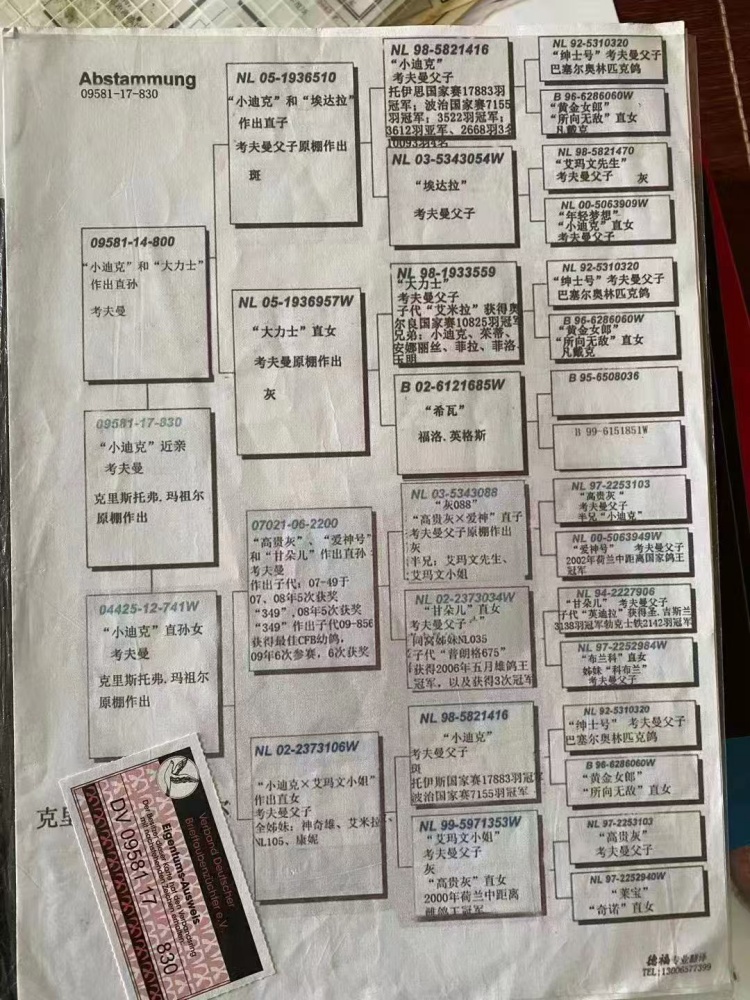 Abstammung
09581-17-830
09581-14-800
“小迪克”和“大力士”
作出直孙
考夫曼
09581-17-830
“小迪克”近亲
考夫曼
克里斯托弗.玛祖尔
原棚作出
04425-12-741W
“小迪克”直孙女
考夫曼
克里斯托弗.玛祖尔
原棚作出
NL 05-1936510
“小迪克”和“埃达拉”
作出直子
考夫曼父子原棚作出
斑
NL 05-1936957W
“大力士”直女
考夫曼原棚作出
灰
07021-06-2200
“高贵灰”、“爱神号”
和“甘朵儿”作出直孙
考夫曼
作出子代：07-49于
07、08年5次获奖
“349”，08年5次获奖
“349”作出子代09-856
获得最佳CFB幼鸽，
09年6次参赛，6次获奖
NL 02-2373106W
“小迪克×艾玛文小姐”
作出直女
考夫曼父子
全姊妹：神奇雄、艾米拉
NL105、康妮
NL 98-5821416
“小迪克”
考夫曼父子
托伊思国家赛17883羽
冠军；波治国家赛7155
羽冠军；3522羽冠军；
3612羽亚军、2668羽3名
10093羽4名
NL 03-5343054W
“埃达拉”
考夫曼父子
NL 98-1933559
“大力士”
考夫曼父子
子代“艾米拉”获得奥
尔良国家赛10825羽冠军
兄弟：小迪克、茱蒂、
安娜丽丝、菲拉、菲洛
玉明
B 02-6121685W
“希瓦”
福洛.英格斯
NL 03-5343088
“灰088”
“高贵灰×爱神”直子
考夫曼父子原棚作出
灰
半兄：艾玛文先生、
艾玛文小姐
NL 02-2373034W
“甘朵儿”直女
考夫曼父子
同窝姊妹NL035
子代“普朗格675”
获得2006年五月雄鸽王
冠军，以及获得3次冠军
NL 98-5821416
“小迪克”
考夫曼父子
斑
托伊斯国家赛17883羽冠军
波治国家赛7155羽冠军
NL 99-5971353W
“艾玛文小姐”
考夫曼父子
灰
“高贵灰”直女
2000年荷兰中距离
雌鸽王冠军
NL 92-5310320
“绅士号”考夫曼父子
巴塞尔奥林匹克鸽
B 96-6286060W
“黄金女郎”
“所向无敌”直女
凡戴克
NL 98-5821470
“艾玛文先生”
考夫曼父子 灰
NL 00-5063909W
“年轻梦想”
“小迪克”直女
考夫曼父子
NL 92-5310320
“绅士号”考夫曼父子
巴塞尔奥林匹克鸽
B 96-6286060W
“黄金女郎”
“所向无敌”直女
凡戴克
B 95-6508036
B 99-6151851W
NL 97-2253103
“高贵灰”
考夫曼父子
半兄“小迪克”
NL 00-5063949W
“爱神号” 考夫曼父子
2002年荷兰中距离国家鸽王
冠军
NL 94-2227906
“甘朵儿” 考夫曼父子
子代“英迪拉”获得圣.吉斯兰
3138羽冠军勃克士铁2142羽冠军
NL 97-2252984W
“布兰科”直女
姊妹“科布兰”
考夫曼父子
NL 92-5310320
“绅士号” 考夫曼父子
巴塞尔奥林匹克鸽
B 96-6286060W
“黄金女郎”
“所向无敌”直女
NL 97-2253103
“高贵灰”
考夫曼父子
NL 97-2252940W
“莱宝”
“奇诺”直女
克里
Verband Deutscher
Brieftaubenzüchter e.V.
Eigentums-Ausweis
DV 09581 17 830
德福专业翻译
TEL:13006577399